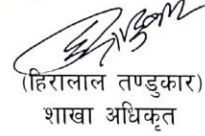 (हिरालाल तण्डुकार)
शाखा अधिकृत